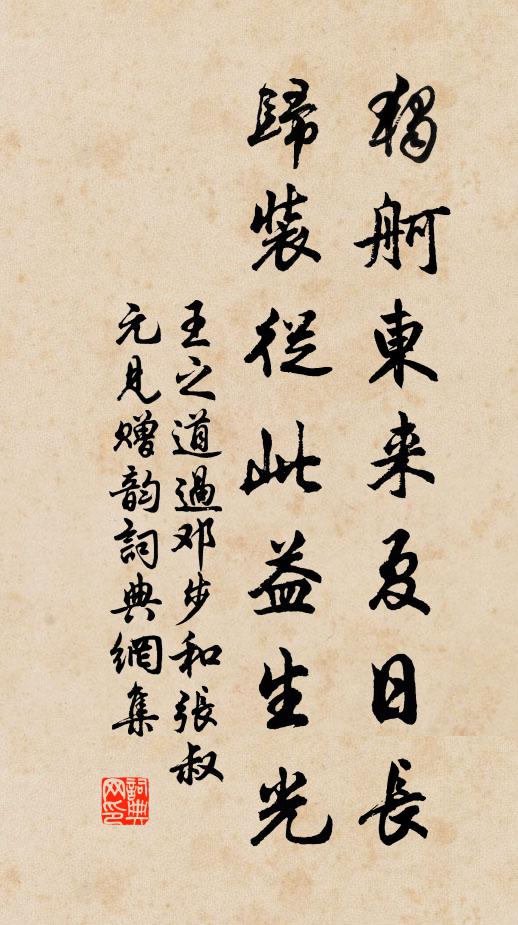 獨舸東来夏日長
歸裝從此益生光
王之道過邓步和張叔
元見贈韵詞典網集
詞典
网印